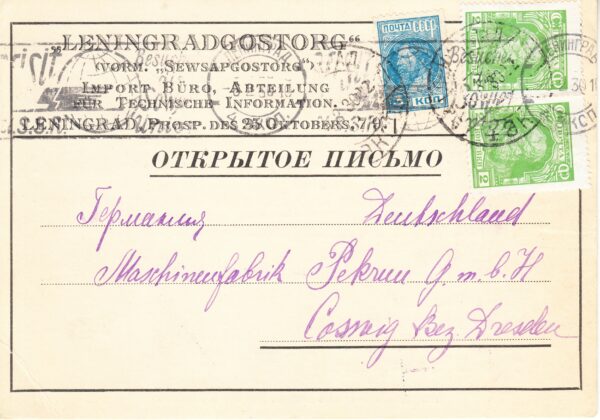 „LENINGRADGOSTORG“
(VORM. „SEWSAPGOSTORG“)
IMPORT BÜRO, ABTEILUNG
FÜR TECHNISCHE INFORMATION.
LENINGRAD, PROSP. DES 25 OKTOBERS, 7/9.
ПОЧТА СССР
5 КОП.
2
ОТКРЫТОЕ ПИСЬМО
Германия Deutschland
Maschinenfabrik Pekrun G.m.b.H
Coswig Bez. Dresden